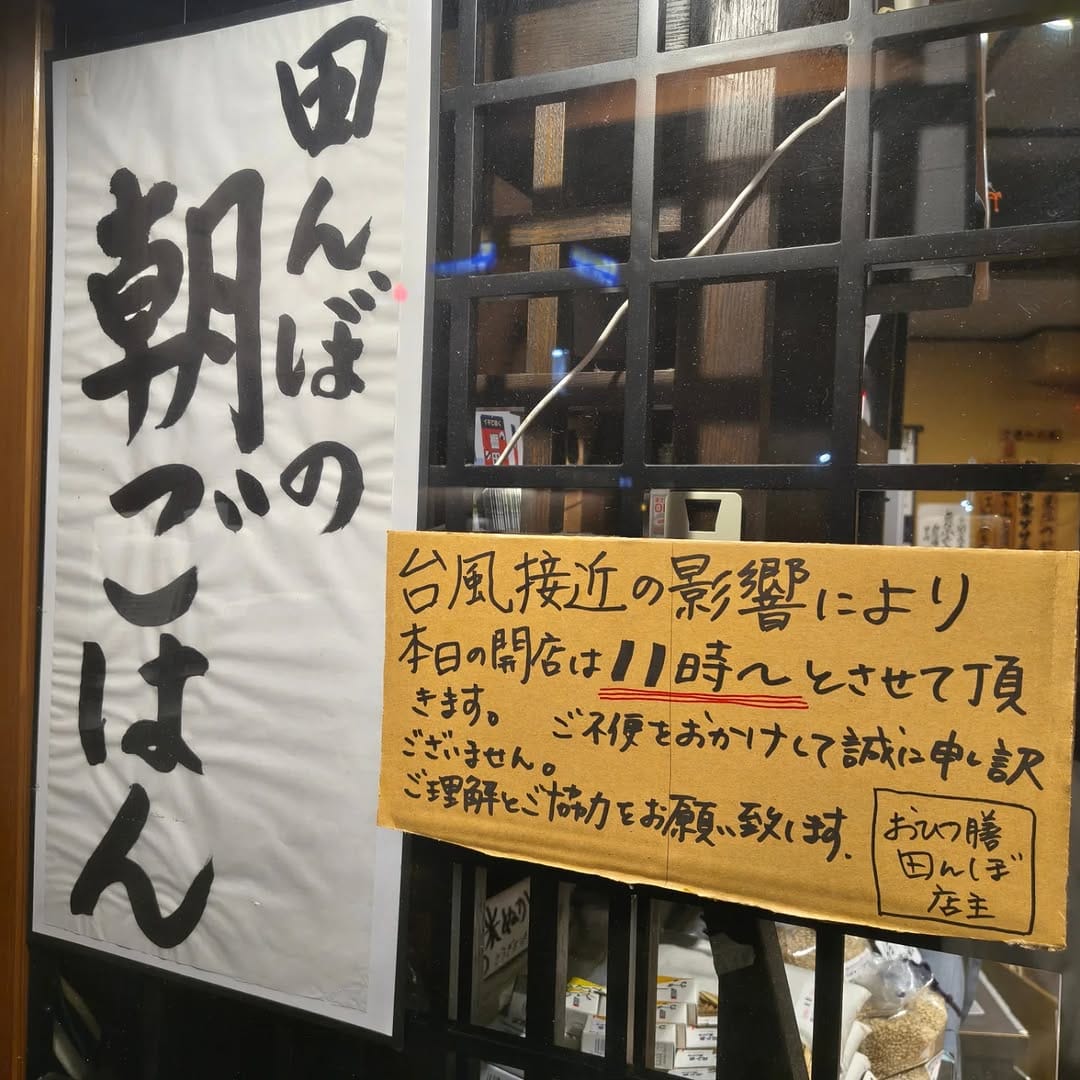 田んぼの
朝ごはん
台風接近の影響により
本日の開店は11時〜とさせて頂
きます。 ご不便をおかけして誠に申し訳
ございません。
ご理解とご協力をお願い致します.
おひつ膳
田んぼ
店主